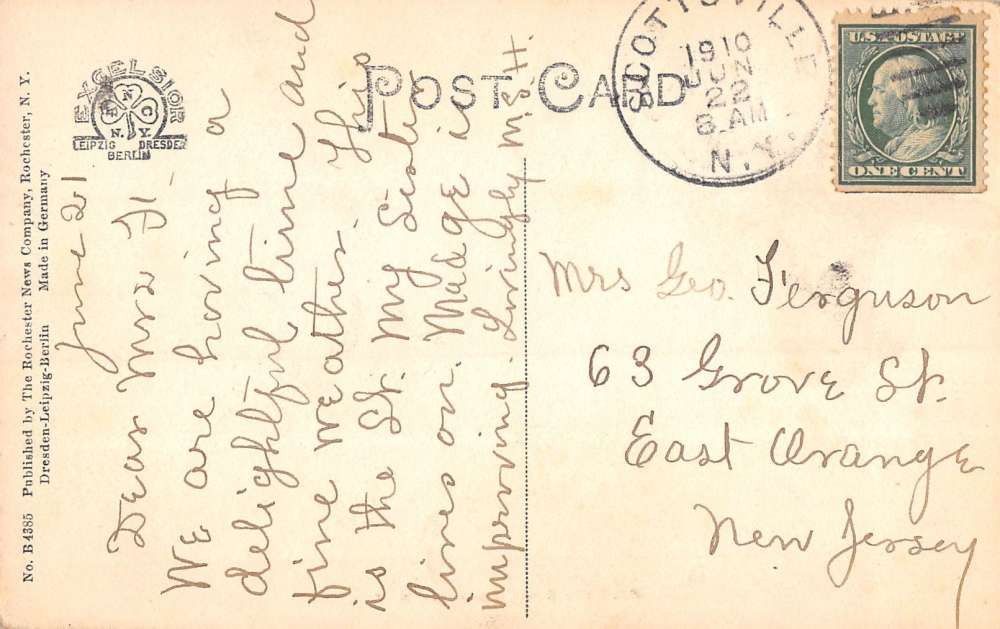 No. B4385 Published by The Rochester News Company, Rochester, N. Y.
Dresden-Leipzig-Berlin Made in Germany
EXCELSIOR
R N C
N. Y.
LEIPZIG DRESDEN
BERLIN
POST CARD
SCOTTSVILLE
1910
JUN
22
8 AM
N.Y.
U.S. POSTAGE
ONE CENT
June 21
Dear Mrs F -
We are having a
delightful time and
fine weather. This
is the St. my Sister
lives on. Madge is
improving. Lovingly M. S. H.
Mrs Geo. Ferguson
63 Grove St.
East Orange
New Jersey